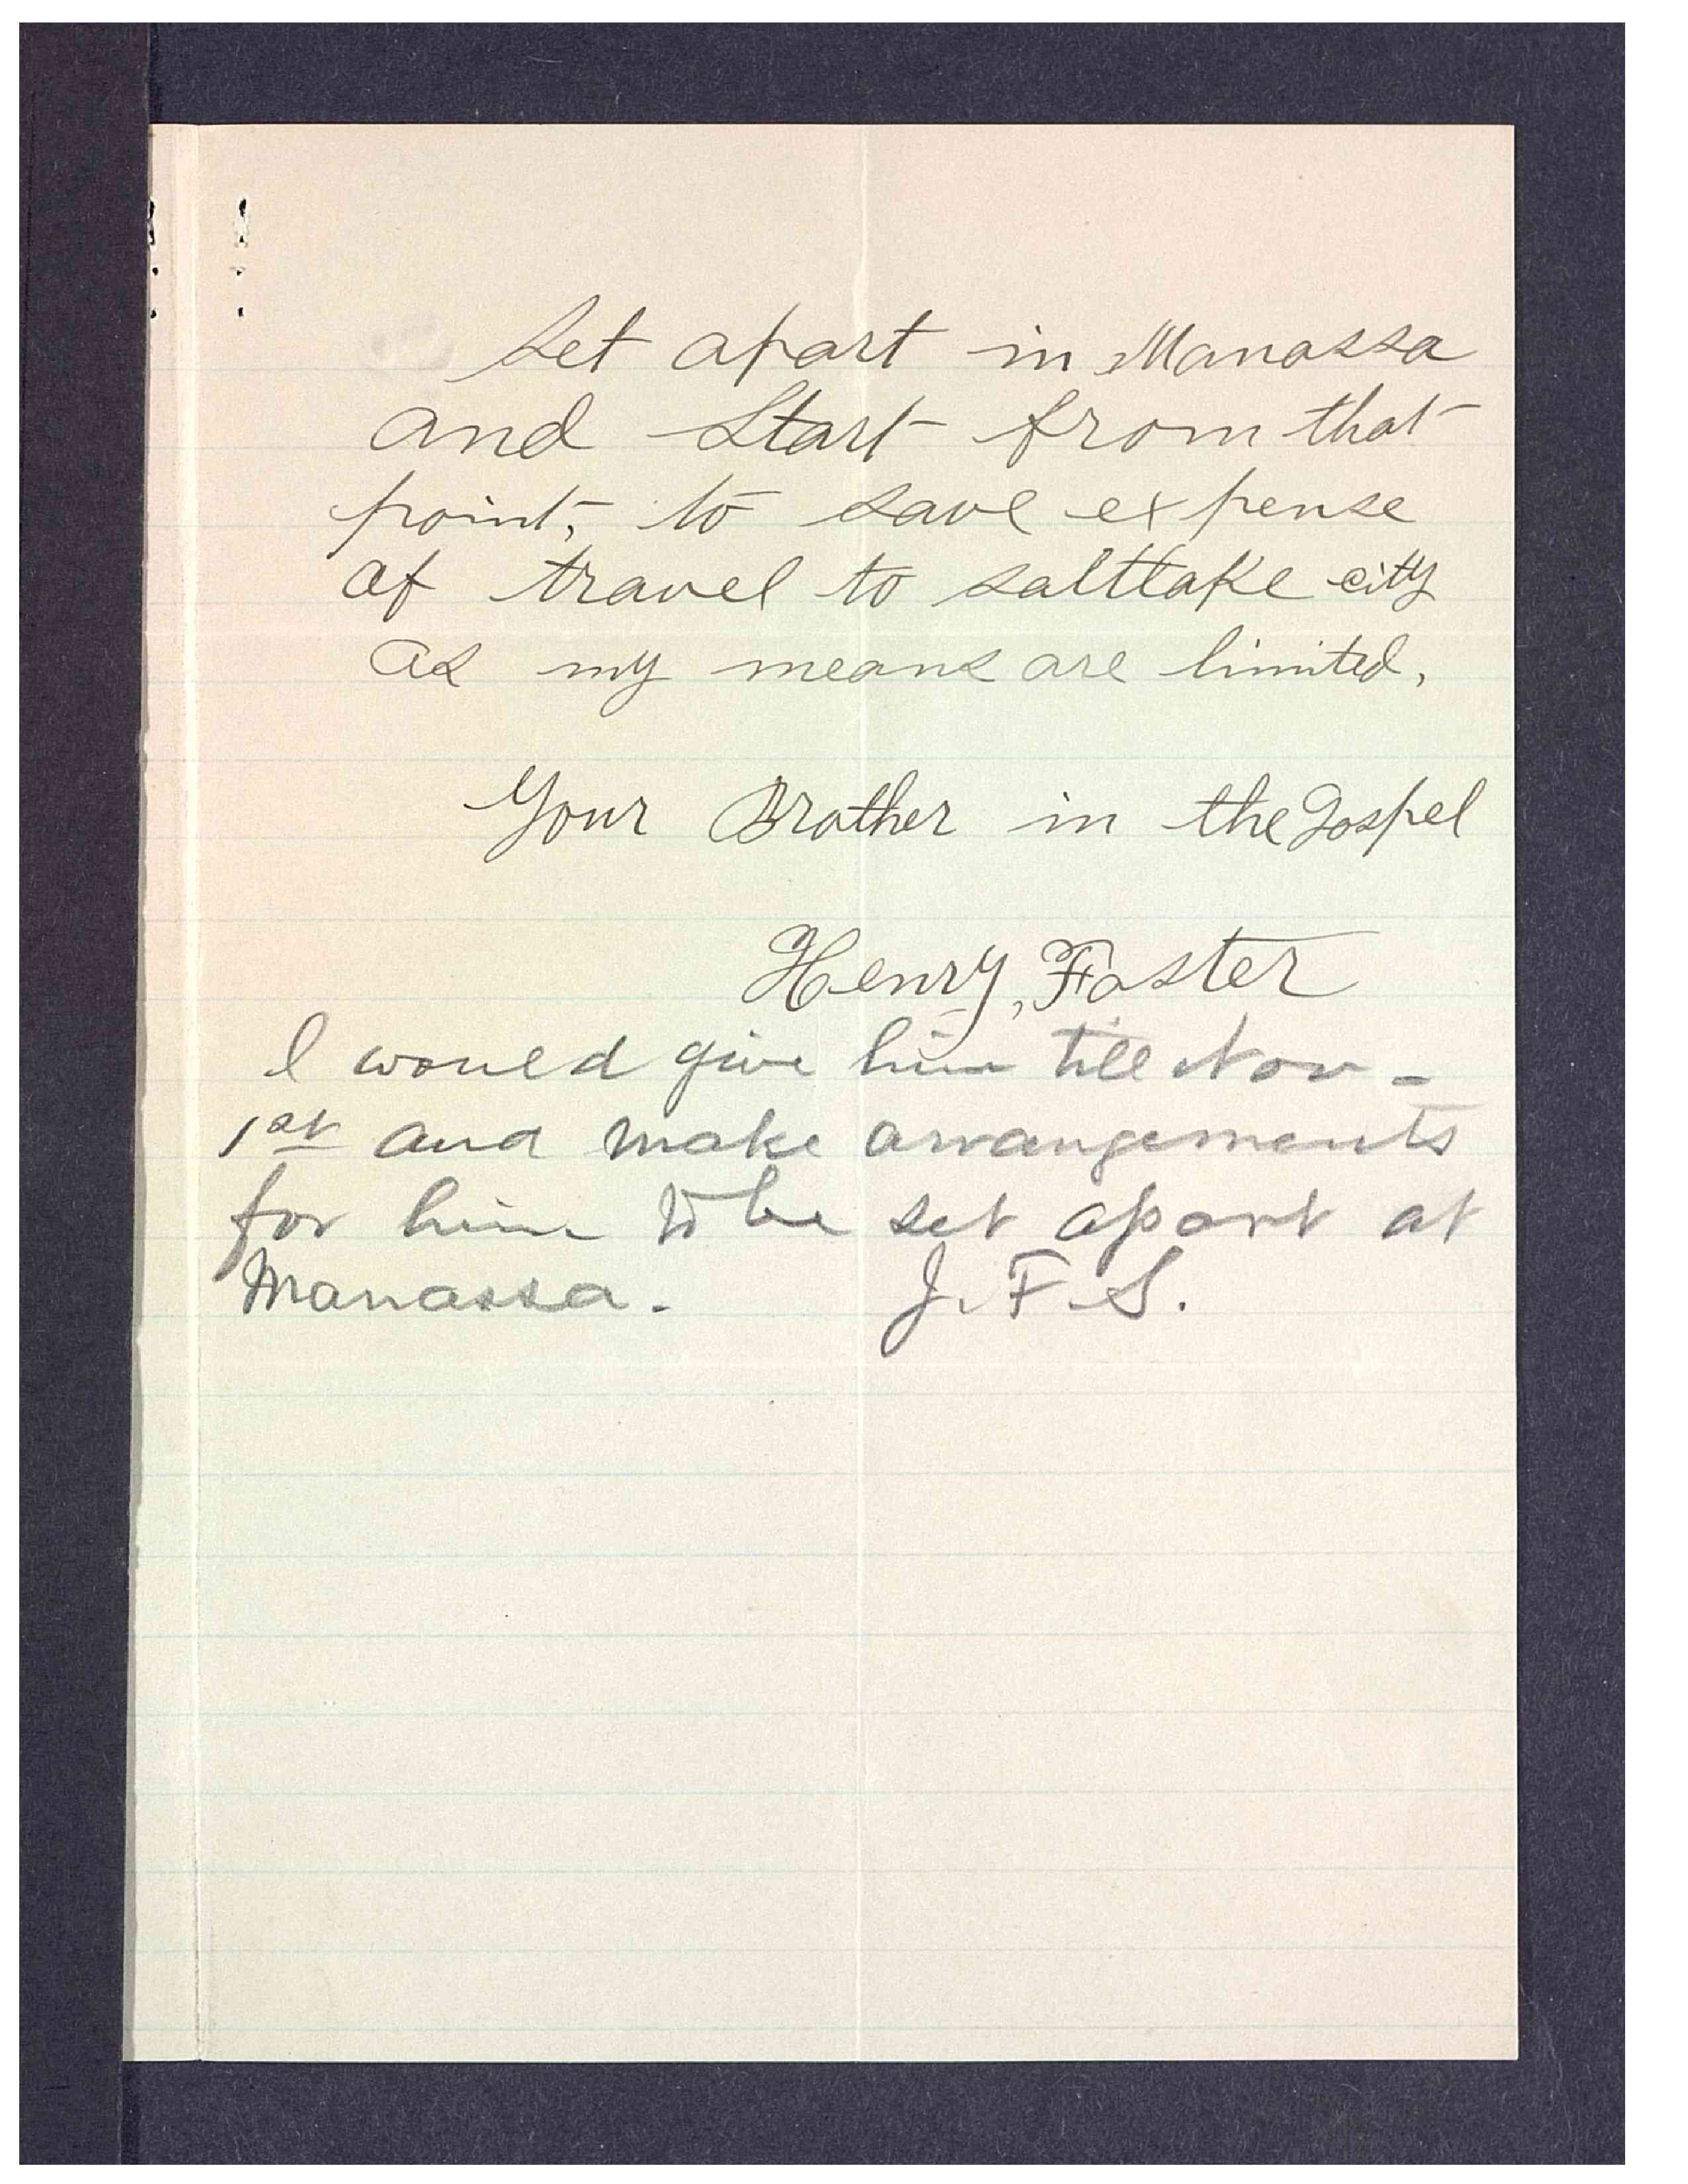 Set apart in Manassa
and Start from that
point, to save expense
of travel to saltlake city
as my means are limited.
Your Brother in the Gospel
Henry, Foster
I would give him till Nov-
1st and make arrangements
for him to be set apart at
Manassa. J. F. S.